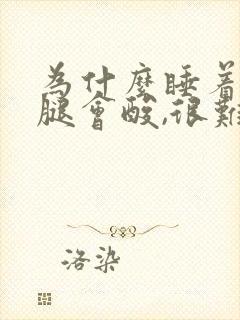 為什麼睡着
腿會酸,很難
洛染